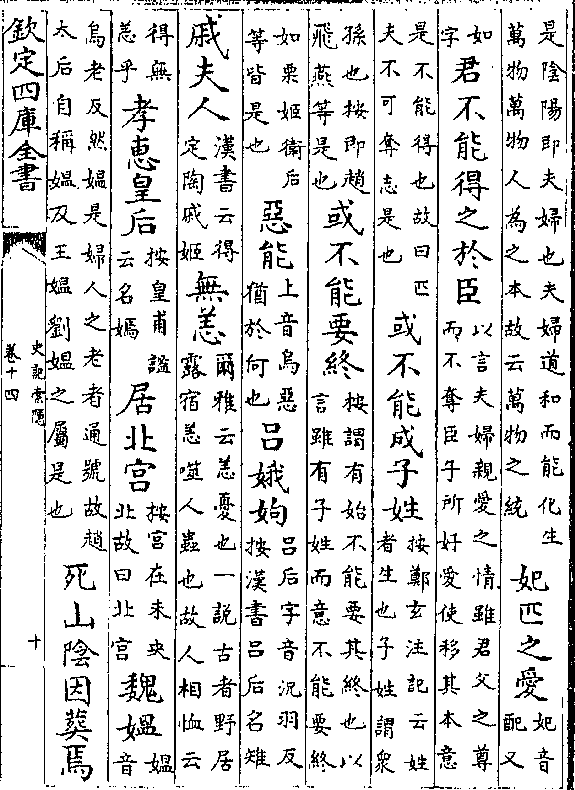 是陰陽即夫婦也夫婦道和而能化生萬物萬物人為之本故云萬物之統妃匹之愛妃音配又
如字君不能得之於臣以言夫婦親愛之情雖君父之尊而不奪臣子所好愛使移其本意
是不能得也故曰匹夫不可奪志是也或不能成子姓按鄭玄注記云姓者生也子姓謂衆
孫也按即趙飛燕等是也或不能要終按謂有始不能要其終也以言雖有子姓而意不能要終
如栗姬衛后等皆是也惡能上音烏惡猶於何也吕娥姁吕后字音況羽反按漢書吕后名雉
戚夫人漢書云得定陶戚姬無恙爾雅云恙憂也一説古者野居露宿恙噬人蟲也故人相恤云
得無恙乎孝惠皇后按皇甫謐云名嫣居北宫按宫在未央北故曰北宫魏媼媼音
烏老反然媼是婦人之老者通號故趙太后自稱媼及王媼劉媼之屬是也死山陰因葬焉
欽定四庫全書
史記索隱
卷十四
十